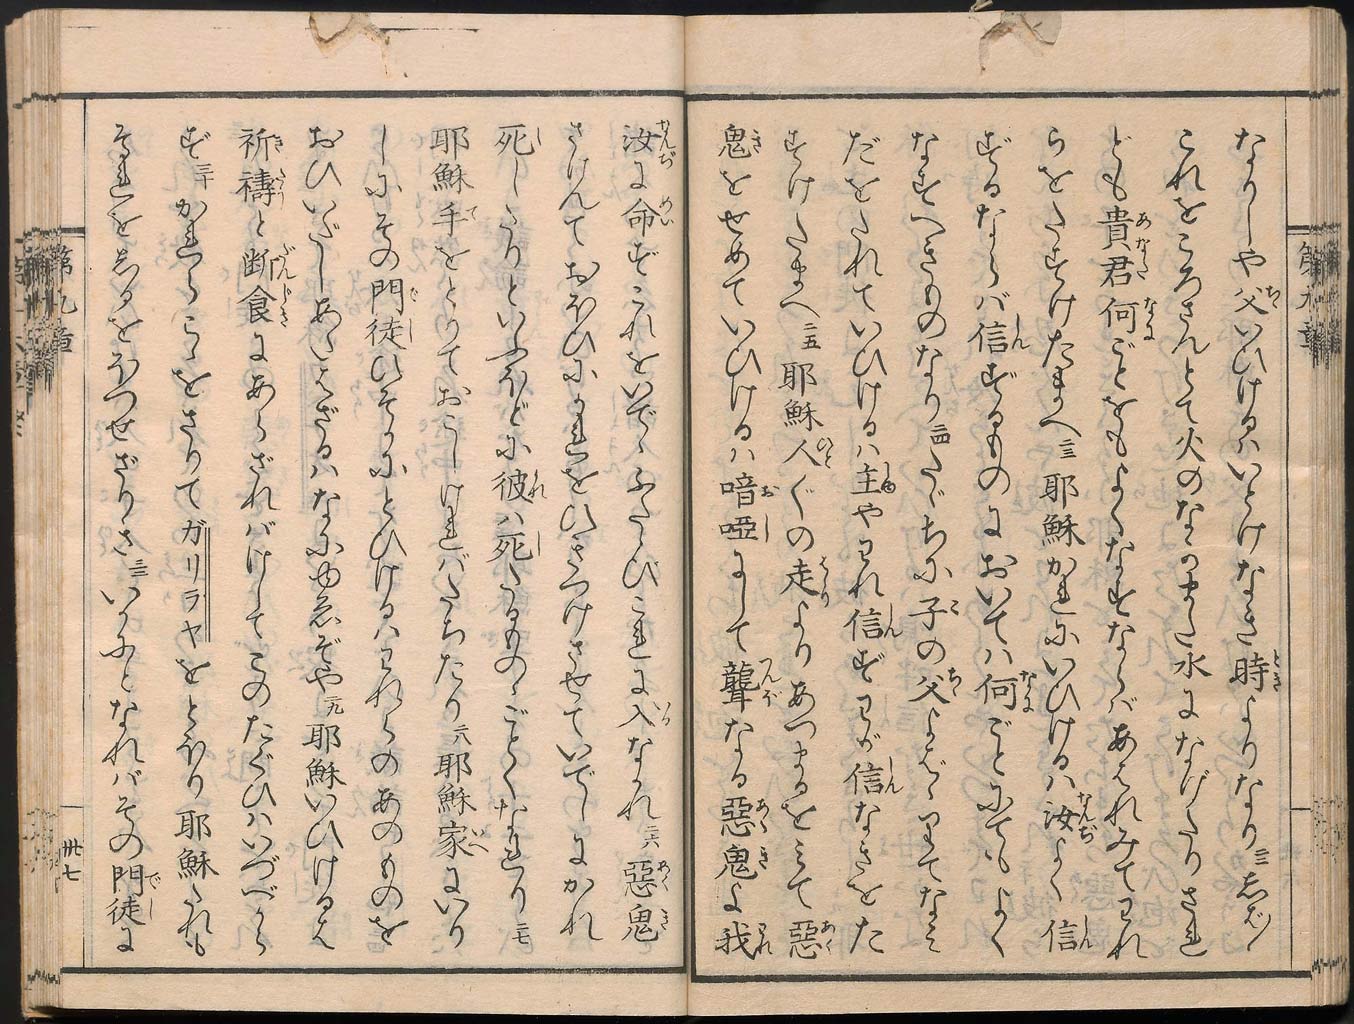 なりしや父いひけるハいとけなき時よりなり二二しば〳〵
これをころさんとて火のなかまた水になげたりされ
ども貴君何ごとをもよくなすならバあはれみてわれ
らをたすけたまへ二三耶穌かれにいひけるハ汝よく信
ずるならバ信ずるものにおいてハ何ごとにてもよく
なすべきものなり二四たゞちに子の父よばゝりてなみ
だをたれていひけるハ主やわれ信ずわが信なきをた
すけたまへ二五耶穌人〴〵の走りあつまるをみて惡
鬼をせめていひけるハ喑啞にして聾なる惡鬼よ我
汝に命ずこれをいでゝふたゝびこれに入なかれ二六惡鬼
さけんておほひにかれをひきつけさせていでしにかれ
死したりといふほどに彼ハ死たるものゝごとくなれり二七
耶穌手をとりておこしけれバたちたり二八耶穌家にいり
しにその門徒ひそかにとひけるハわれらのあのものを
おひいだしあたはざるハなにゆゑぞや二九耶穌いひけるハ
祈禱と断食にあらざれバけしてこのたぐひハいづべから
ず三十かれらこゝをさりてガリラヤをとほり耶穌たれも
それをしるをほつせざりき三一いかにとなれバその門徒に
第九章
卅七
第九章